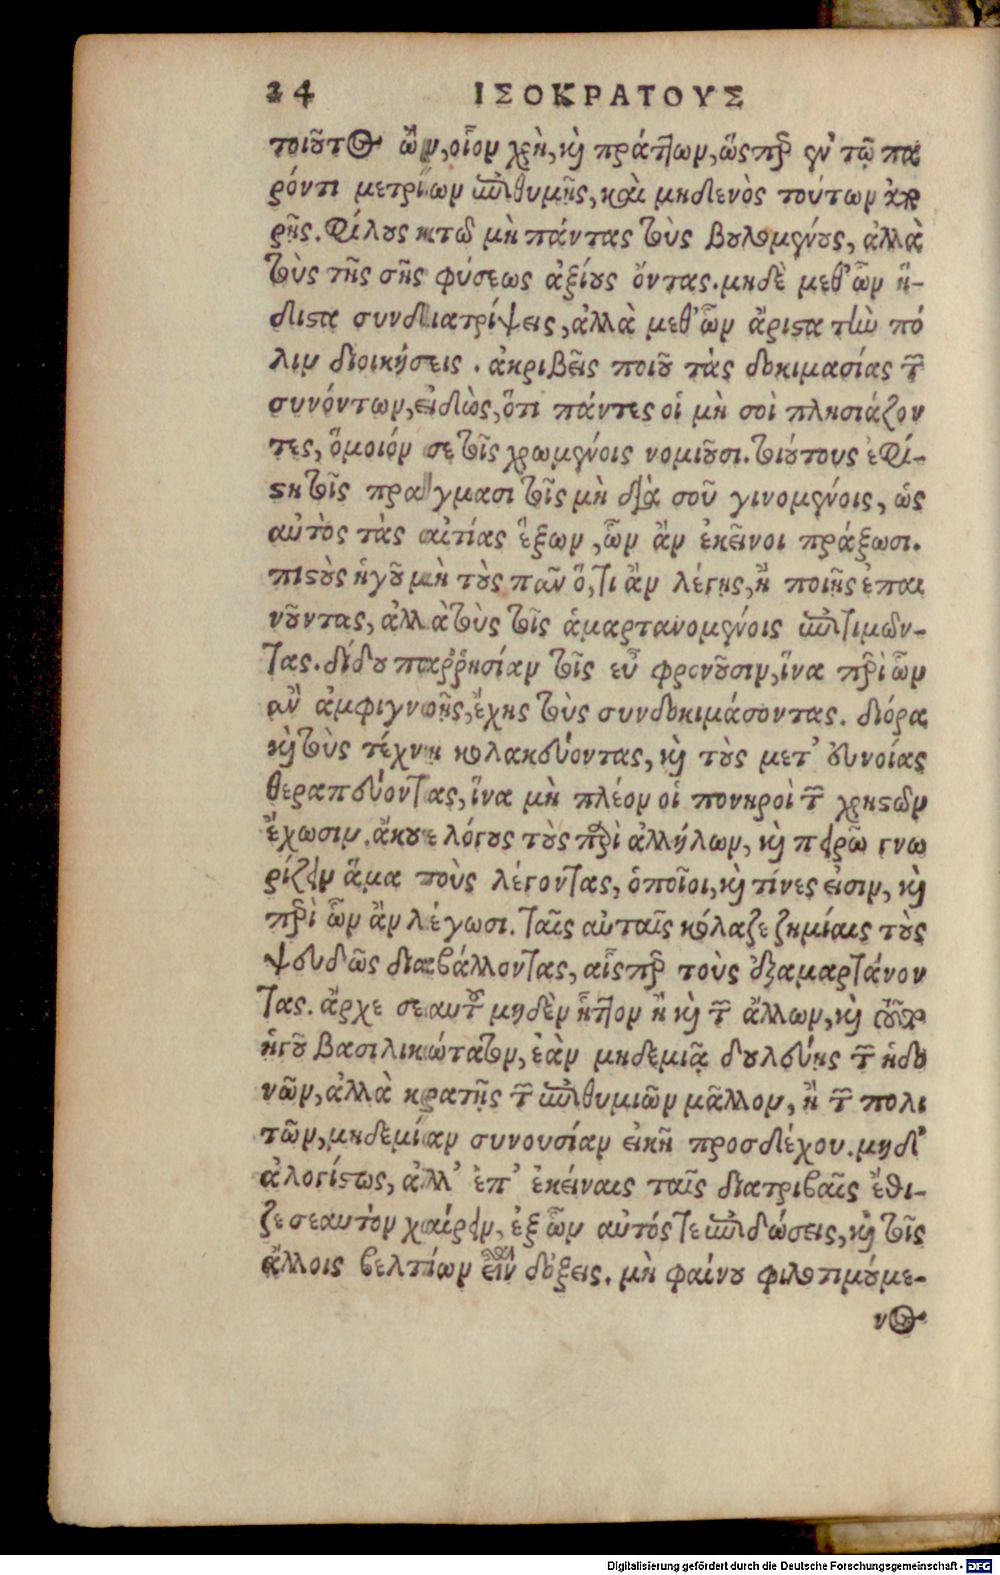 24 ΙΣΟΚΡΑΤΟΥΣ
τοιοῦτος ὢν, οἷον χρὴ, καὶ πράττων, ὥσπερ ἐν τῷ πα
ρόντι μετρίων ἐπιθυμῇς, καὶ μηδενὸς τούτων ἀπ
ρῇς. φίλους κτῶ μὴ πάντας τοὺς βουλομένους, ἀλλὰ
τοὺς τῆς σῆς φύσεως ἀξίους ὄντας. μηδὲ μεθ᾽ ὧν ἥ-
διστα συνδιατρίψεις, ἀλλὰ μεθ᾽ ὧν ἄριστα τὴν πό
λιν διοικήσεις. ἀκριβεῖς ποιοῦ τὰς δοκιμασίας τῶν
συνόντων, εἰδὼς, ὅτι πάντες οἱ μὴ σοὶ πλησιάζον
τες, ὅμοιόν σε τοῖς χρωμένοις νομιοῦσι. τοιούτους ἐφί-
στη τοῖς πράγμασι τοῖς μὴ διὰ σοῦ γινομένοις, ὡς
αὐτὸς τὰς αἰτίας ἕξων, ὧν ἂν ἐκεῖνοι πράξωσι.
πιστοὺς ἡγοῦ μὴ τοὺς πᾶν ὅ, τι ἂν λέγῃς, ἢ ποιῇς ἐπαι
νοῦντας, ἀλλὰ τοὺς τοῖς ἁμαρτανομένοις ἐπιτιμῶν-
τας. δίδου παῤῥησίαν τοῖς εὖ φρονοῦσιν, ἵνα περὶ ὧν
ἂν ἀμφιγνοῇς, ἔχῃς τοὺς συνδοκιμάσοντας. διόρα
καὶ τοὺς τέχνῃ κολακεύοντας, καὶ τοὺς μετ᾽ εὐνοίας
θεραπεύοντας, ἵνα μὴ πλέον οἱ πονηροὶ τῶν χρηστῶν
ἔχωσιν. ἄκουε λόγους τοὺς περὶ ἀλλήλων, καὶ πειρῶ γνω
ρίζειν ἅμα τοὺς λέγοντας, ὁποῖοι, καὶ τίνες εἰσιν, καὶ
περὶ ὧν ἂν λέγωσι. ταῖς αὐταῖς κόλαζε ζημίαις τοὺς
ψευδῶς διαβάλλοντας, αἷσπερ τοὺς ἐξαμαρτάνον
τας. ἄρχε σεαυτοῦ μηδὲν ἧττον ἢ καὶ τῶν ἄλλων, καὶ τοῦτο
ἡγοῦ βασιλικώτατον, ἐὰν μηδεμιᾷ δουλεύῃς τῶν ἡδο
νῶν, ἀλλὰ κρατῇς τῶν ἐπιθυμιῶν μᾶλλον, ἢ τῶν πολι
τῶν, μηδεμίαν συνουσίαν εἰκῇ προσδέχου. μηδ᾽
ἀλογίστως, ἀλλ᾽ ἐπ᾽ ἐκείναις ταῖς διατριβαῖς ἔθι-
ζε σεαυτὸν χαίρειν, ἐξ ὧν αὐτός τε ἐπιδώσεις, καὶ τοῖς
ἄλλοις βελτίων εἶναι δόξεις. μὴ φαίνου φιλοτιμούμε-
νος
Digitalisierung gefördert durch die Deutsche Forschungsgemeinschaft - DFG